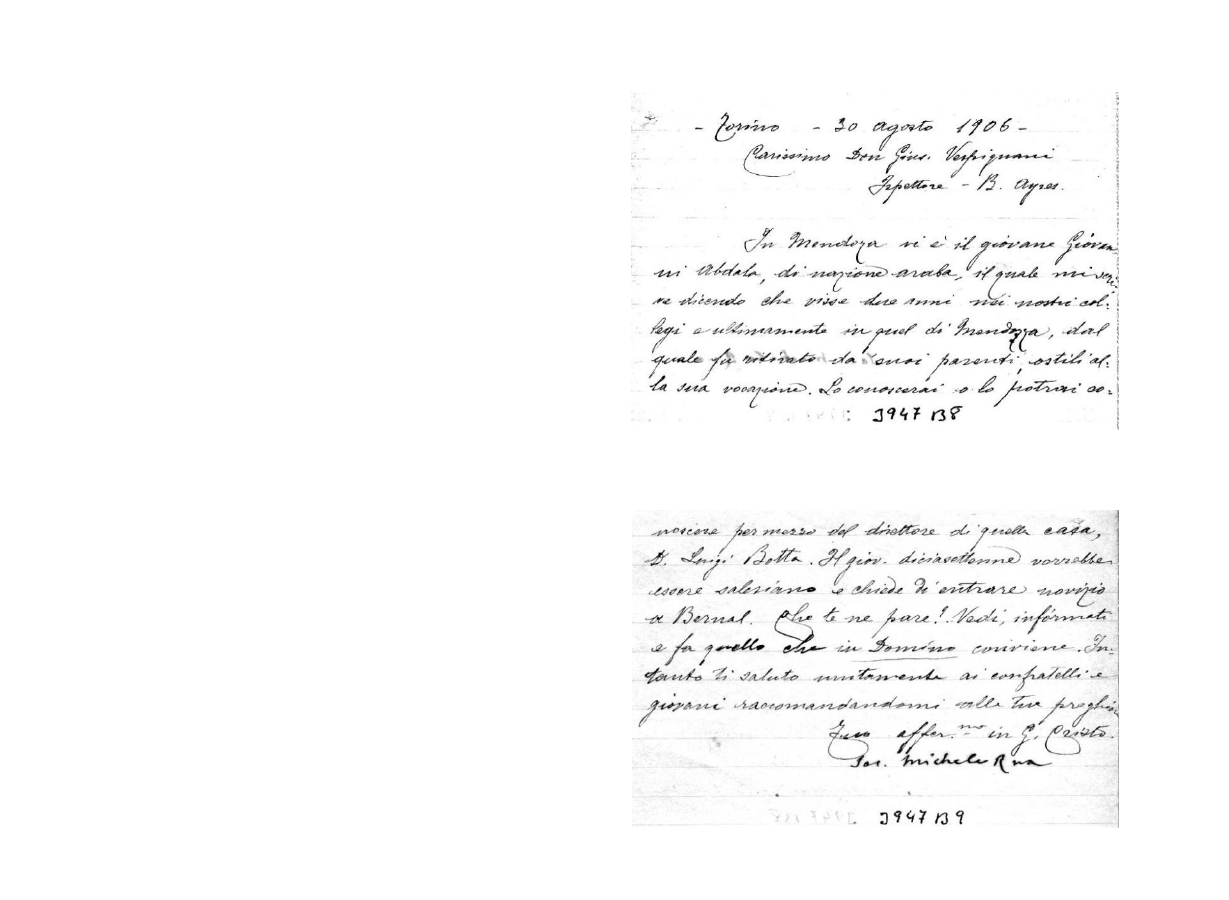 - Torino - 30 agosto 1906 -
Carissimo Don Gius. Vespignani
Ispettore - B. Ayres.
In Mendoza vi è il giovane Giovan
ni Abdala, di nazione araba, il quale mi scri
ve dicendo che visse due anni nei nostri col:
legi e ultimamente in quel di Mendozza, dal
quale fu ritirato da suoi parenti, ostili al:
la sua vocazione. Lo conoscerai o lo potrai co:
J947 B8
noscere per mezzo del direttore di quella casa,
D. Luigi Botta. Il giov. diciasettenne vorrebbe
essere salesiano e chiede di entrare novizio
a Bernal. Che te ne pare? Vedi, informati
e fa quello che in Domino conviene. In-
tanto ti saluto unitamente ai confratelli e
giovani raccomandandomi alle tue preghie
Tuo affez.mo in G. Cristo.
Sac. Michele Rua
J947 B9